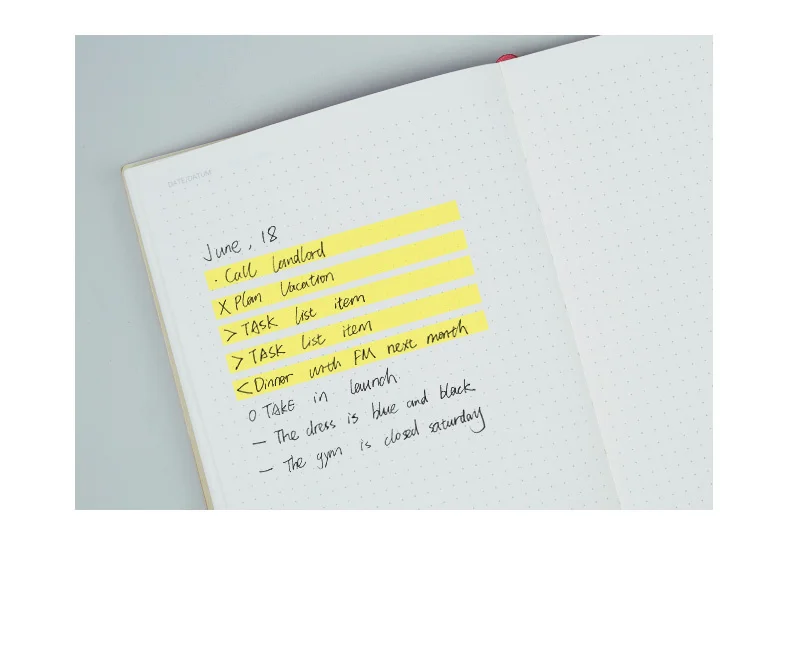 DATE/DATUM:
June, 18
· Call landlord
X Plan Vacation
> TASK list item
> TASK list item
< Dinner with FM next month
O TAKE in launch
— The dress is blue and black
— The gym is closed saturday